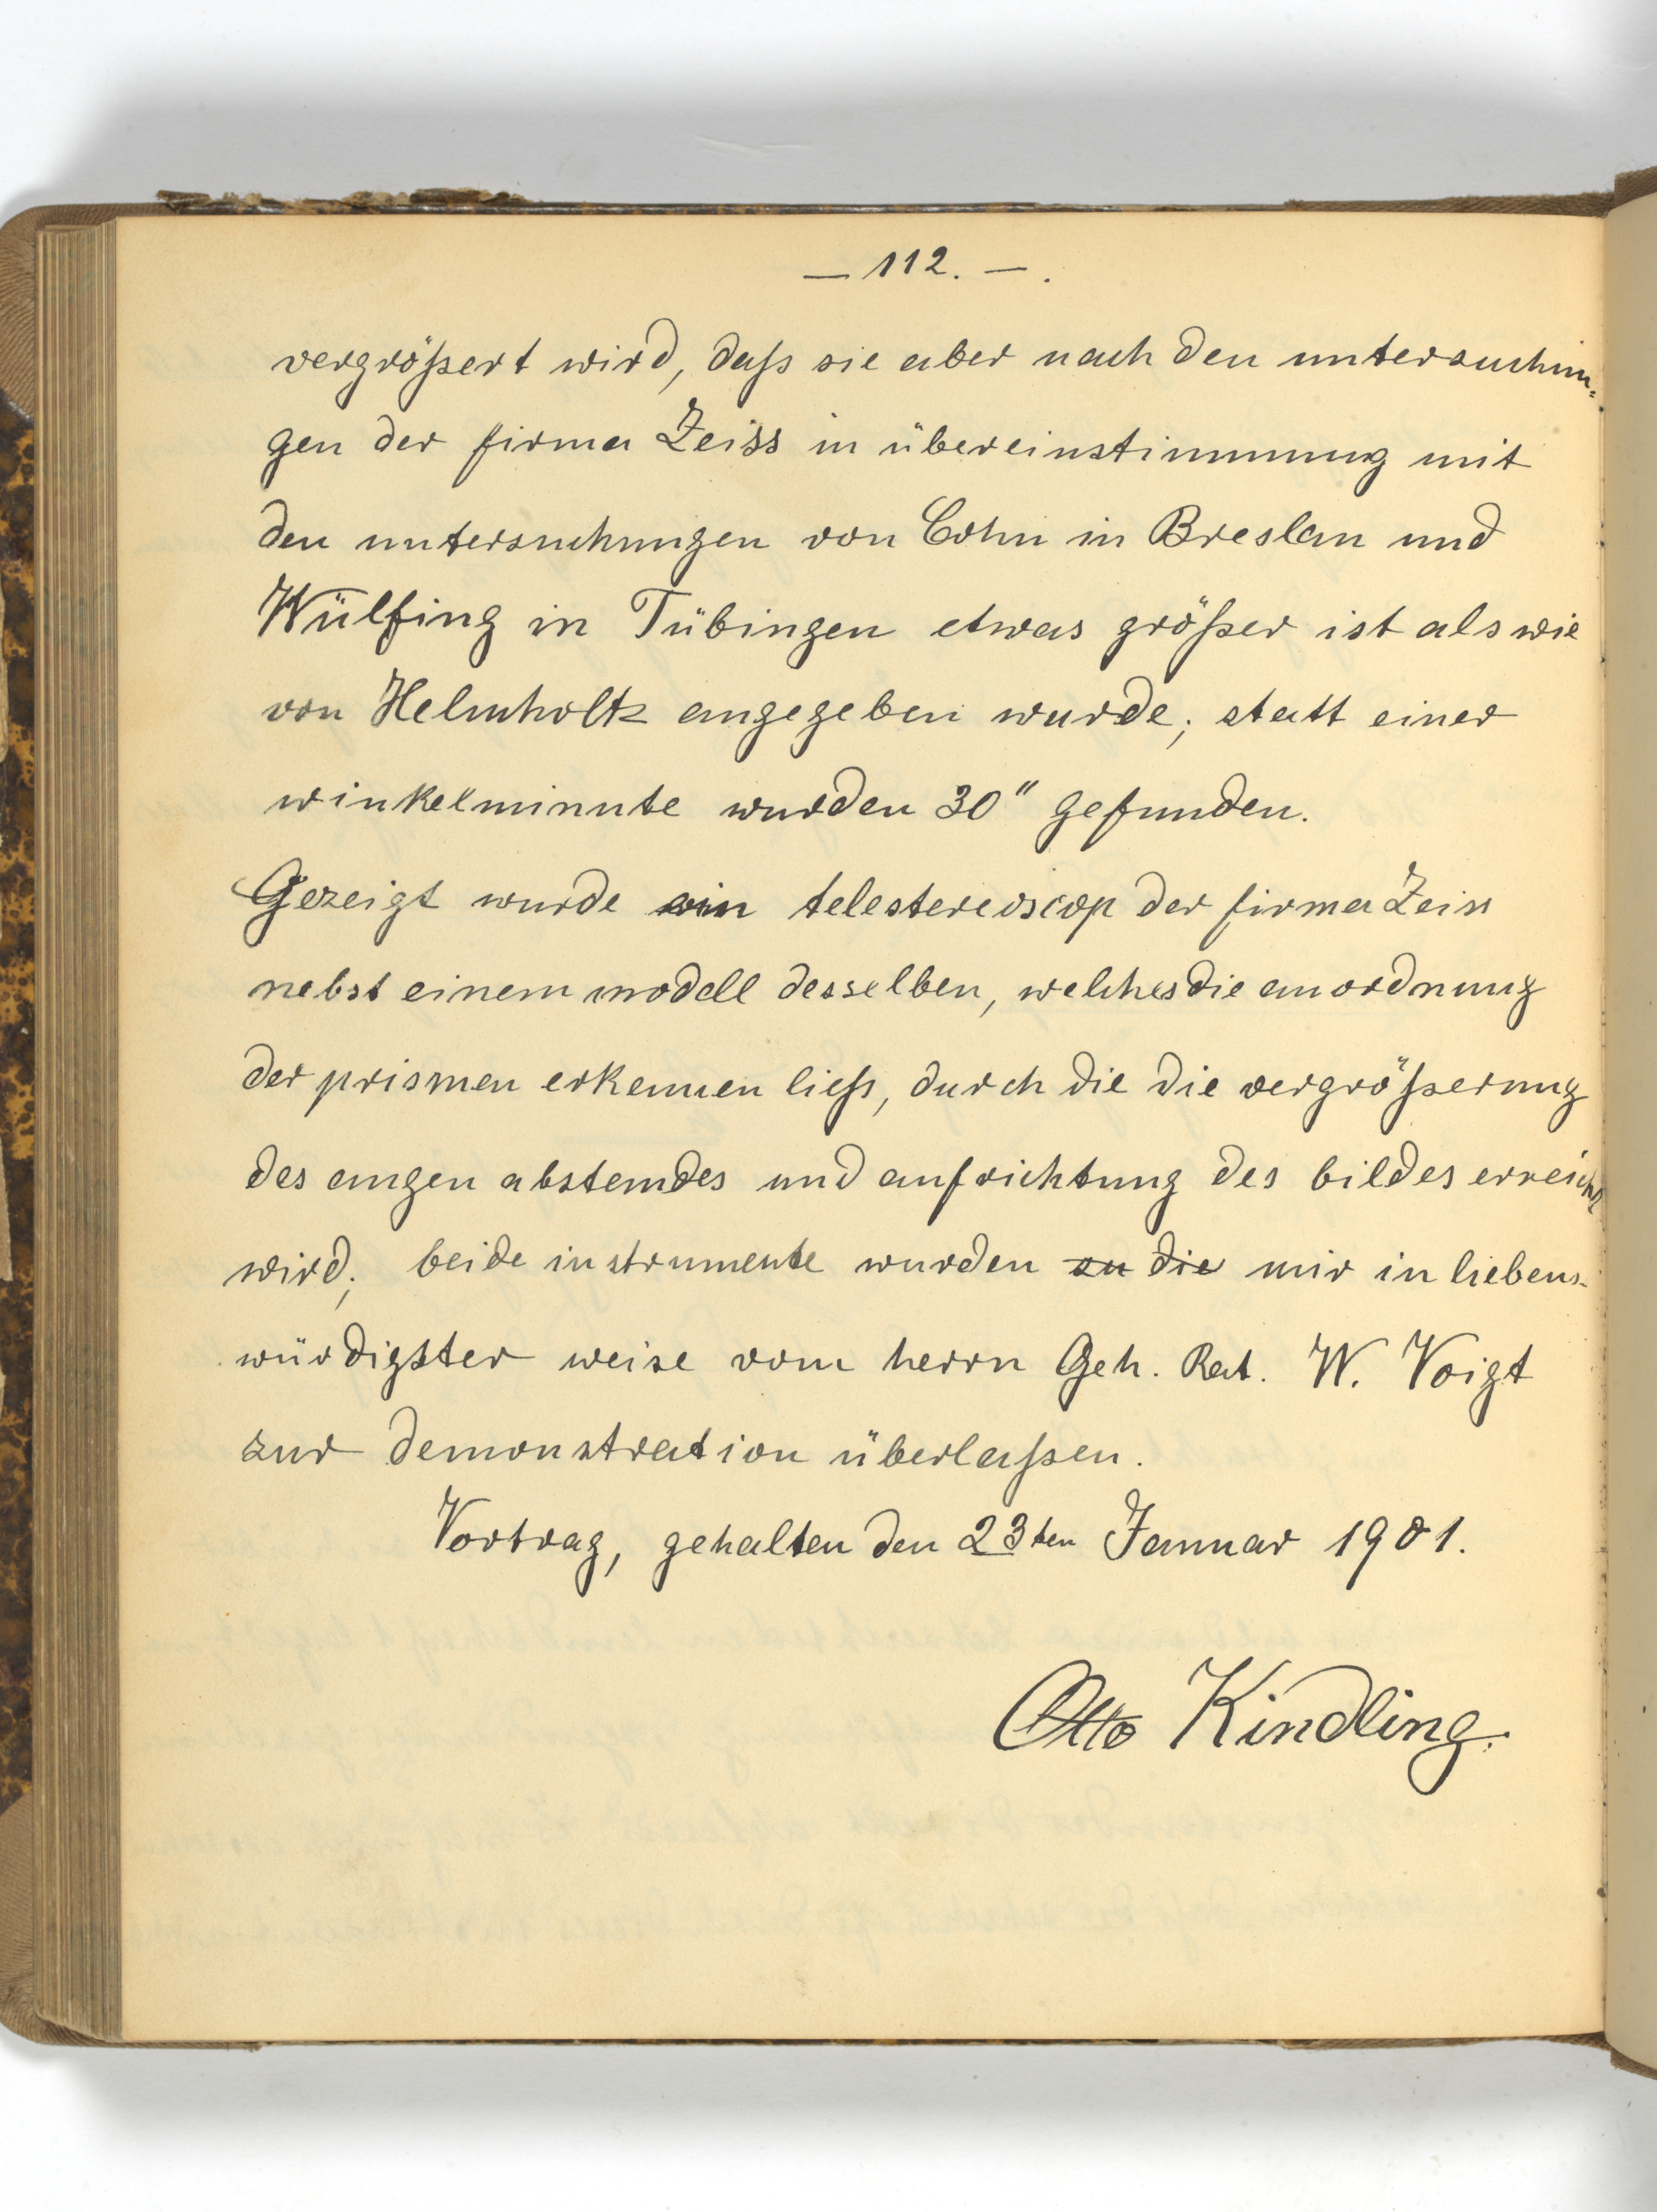 — 112. — .
vergrößert wird, daß sie aber nach den untersuchun-
gen der firma Zeiss in übereinstimmung mit
den untersuchungen von Cohn in Breslau und
Wülfing in Tübingen etwas größer ist als wie
von Helmholtz angegeben wurde; statt einer
winkelminute wurden 30" gefunden.
Gezeigt wurde ein telestereoscop der firma Zeiss
nebst einem modell desselben, welches die anordnung
der prismen erkennen ließ, durch die die vergrößerung
des augen abstandes und aufrichtung des bildes erreicht
wird; beide instrumente wurden zu die mir in liebens-
würdigster weise vom herrn Geh. Rat. W. Voigt
zur demonstration überlaßen.
Vortrag, gehalten den 23ten Januar 1901.
Otto Kindling.